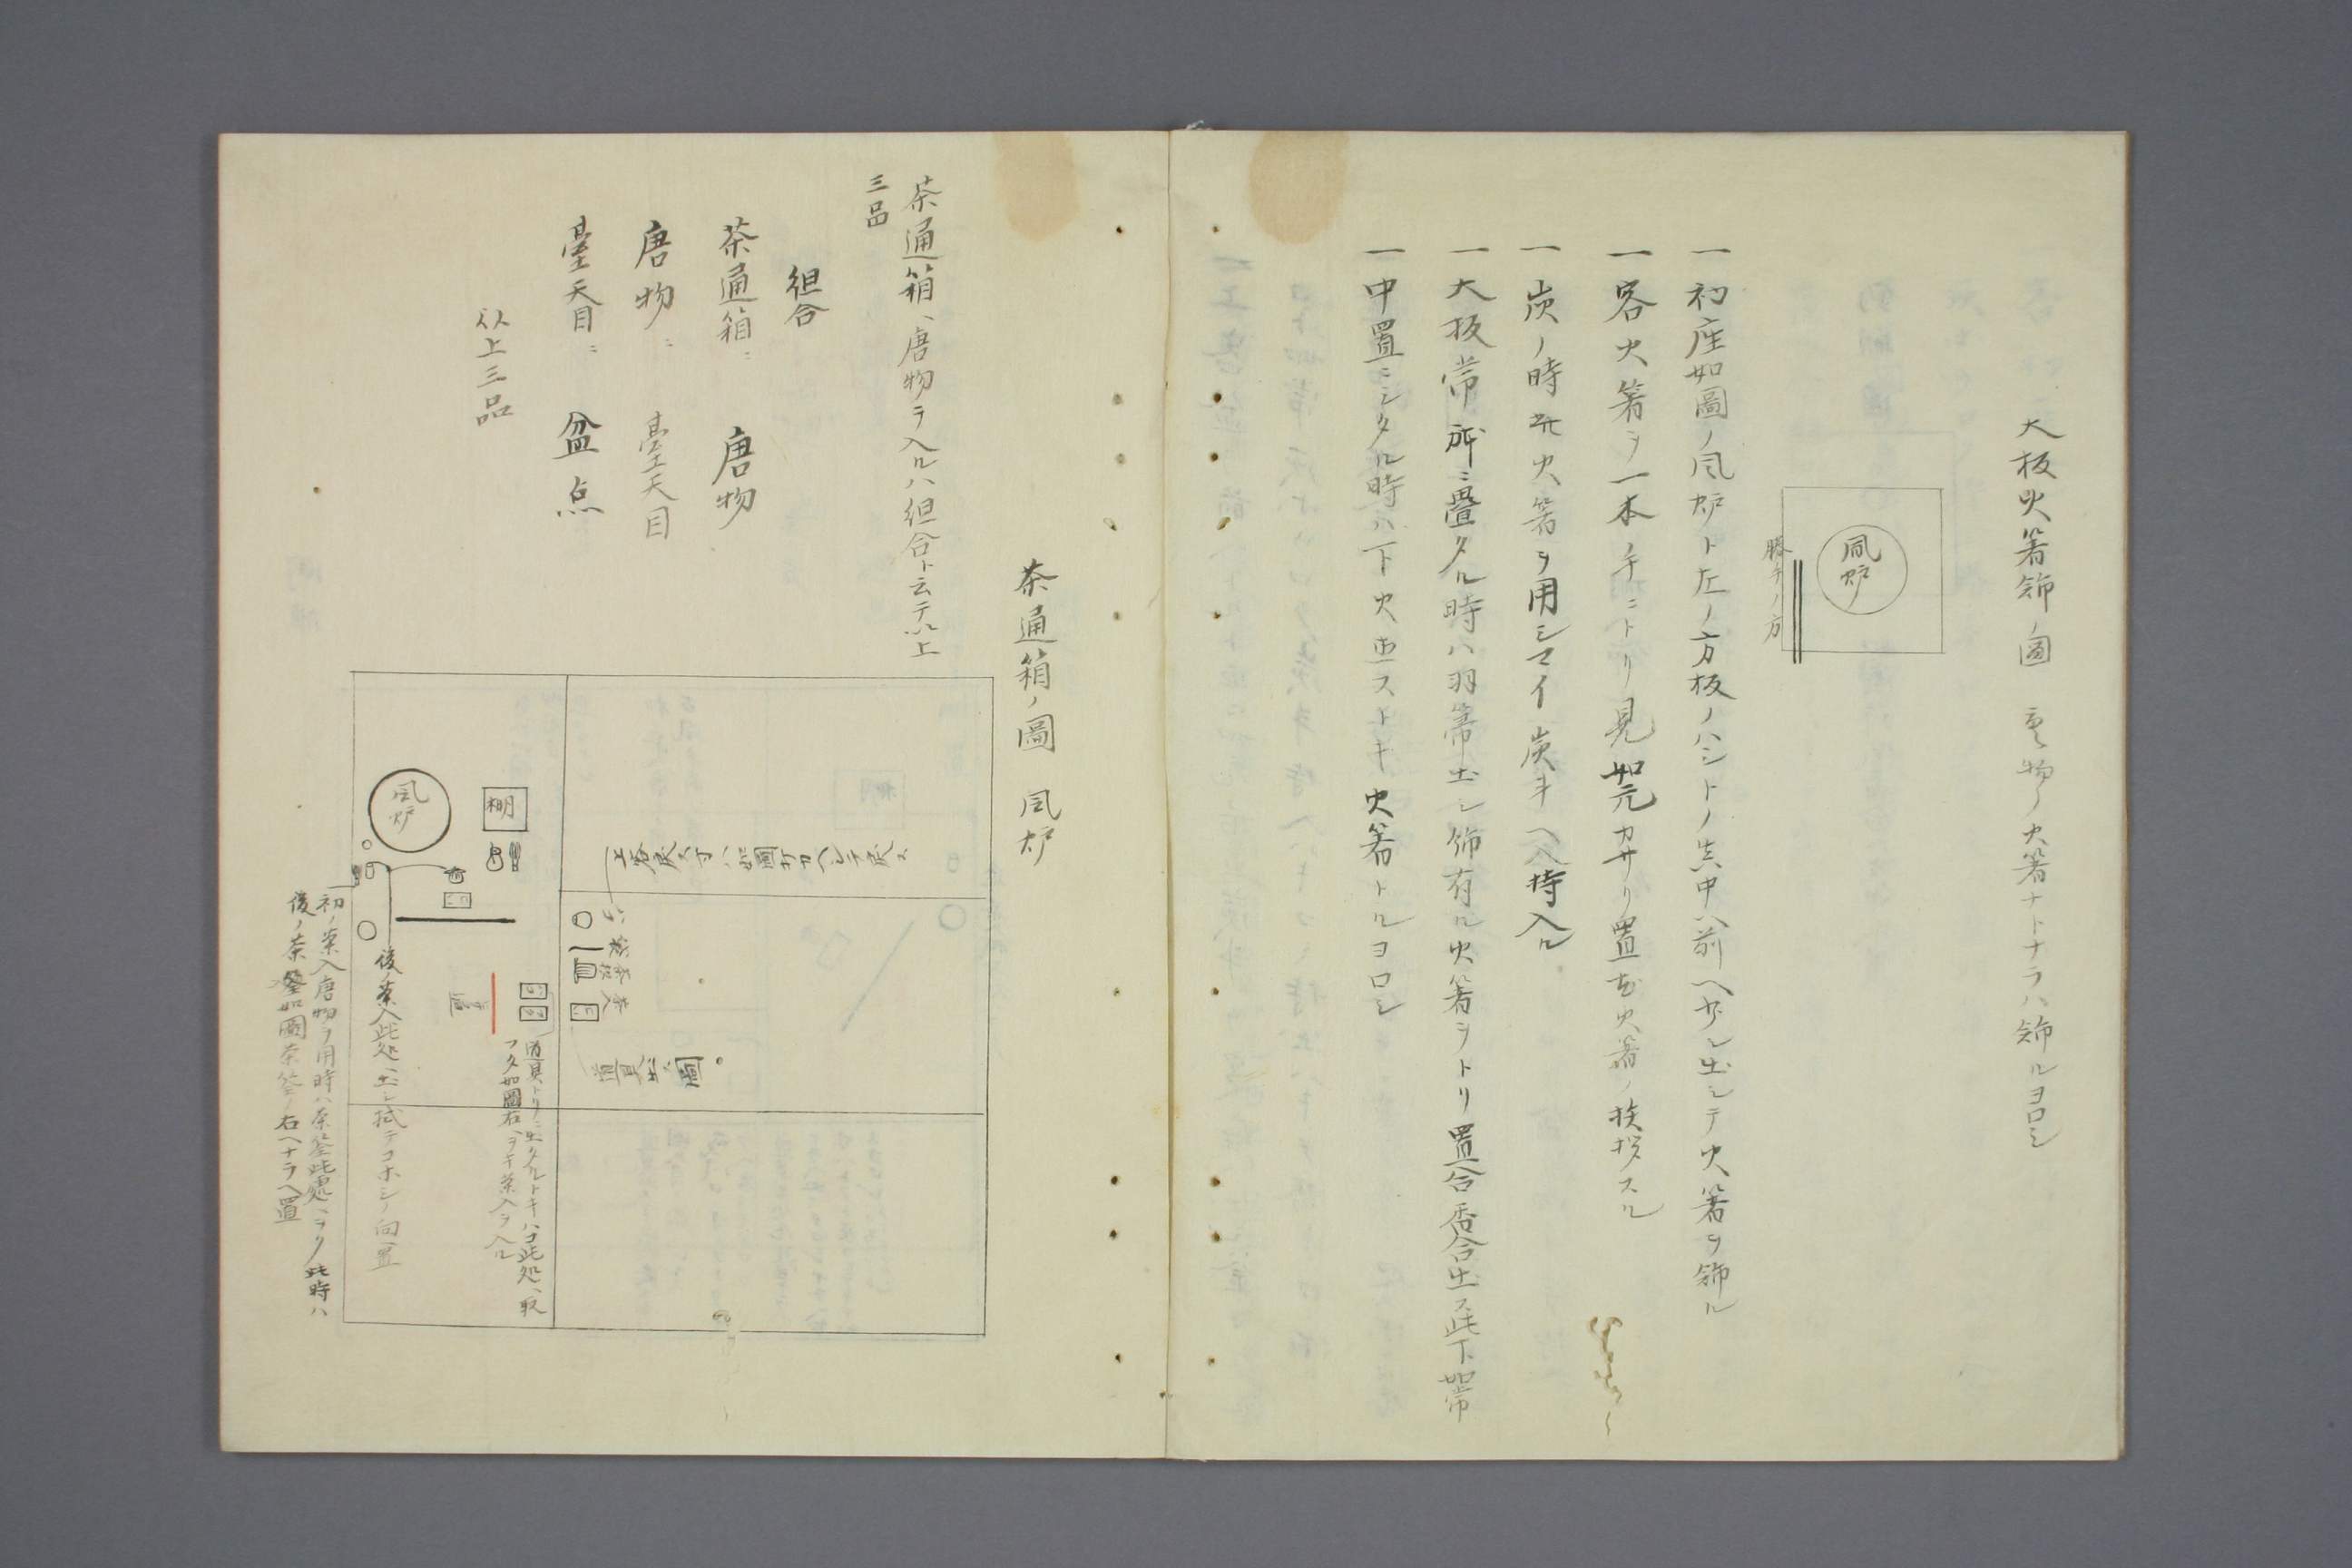 大板火箸飾ノ圖　重キ物ノ火箸ナトナラハ飾ルヨロシ
風炉
勝手ノ方
一初座如圖ノ風炉ト左ノ方板ノハシトノ真中ヘ前ヘ少シ出シテ火箸ヲ飾ル
一客火箸ヲ一本ノ手ニトリ見如元カサリ置亦火箸ノ挨拶スル
一炭ノ時此火箸ヲ用シマイ炭斗ヘ入持入ル
一大板常所ニ置タル時ハ羽箒出シ飾有ル火箸ヲトリ置合香合出ス此下如常
一中置ニシタル時ハ下火直ストキ火箸トルヨロシ
茶通箱ノ圖　風炉
茶通箱ヘ唐物ヲ入ルハ組合ト云テ以上
三品
組合
茶通箱ニ　唐物
唐物ニ　臺天目
臺天目ニ　盆点
以上三品
風炉
棚
道具出ス圖
道具トリニ出タルトキハコ此処ヘ取
フタ如圖右ヘヲキ茶入ヲ入ル
後ノ茶入此処ヘ出シ拭テコホシノ向置
初ノ茶入唐物ヲ用時ハ茶筌此処ヘヲク此時ハ
後ノ茶筌如圖茶筌ノ右ヘナラヘ置